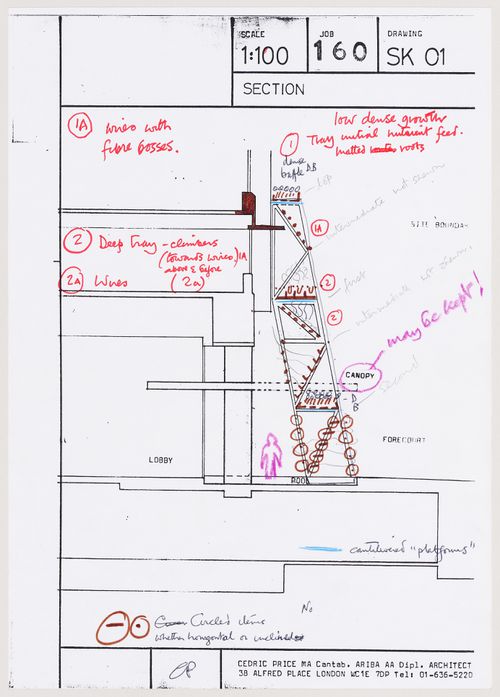 SCALE JOB DRAWING
1:100 160 SK 01
SECTION
1A wires with
fibre bosses.
1 low dense growth
Tray initial nutrient feed.
matted roots
dense
baffle DB
top
intermediate not shown
1A
SITE BOUNDAR
2 Deep Tray - climbers
(towards wires) 1A
above & before
2A Wires (2a)
2
first
intermediate not shown.
2
may be kept!
CANOPY
D
B
second
FORECOURT
LOBBY
POOL
cantilevered "platforms"
No
Circled items
whether horizontal or inclined
CP
CEDRIC PRICE MA Cantab. ARIBA AA Dipl. ARCHITECT
38 ALFRED PLACE LONDON WC1E 7DP Tel: 01-636-5220